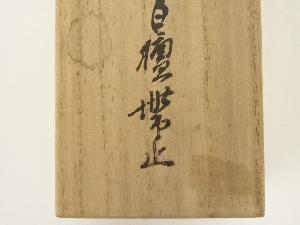 白檀帯止